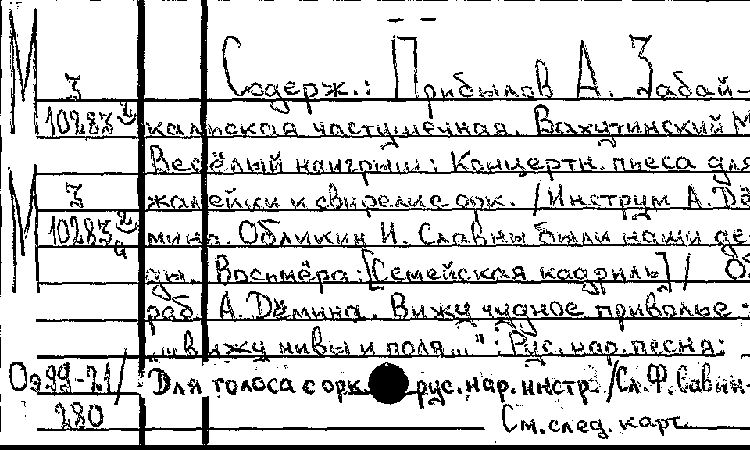 М З Содерж.: Прибылов А. Забай-
10283 калиская частушечная. Вахутинский М
Весёлый наигрыш: Концертн. пьеса для
М З жалейки и свирели с орк. /Инструм А. Дё
10283 мина. Обликин И. Славны были наши де
ды. Восьмёра: [Семейская кадриль] / Об
раб. А. Дёмина. Вижу чудное приволье:
"...вижу нивы и поля...": Рус. нар. песня:
Оэ99-21/ Для голоса с орк рус. нар. инстр. /Сл. Ф. Савин-
280 См. след. карт.